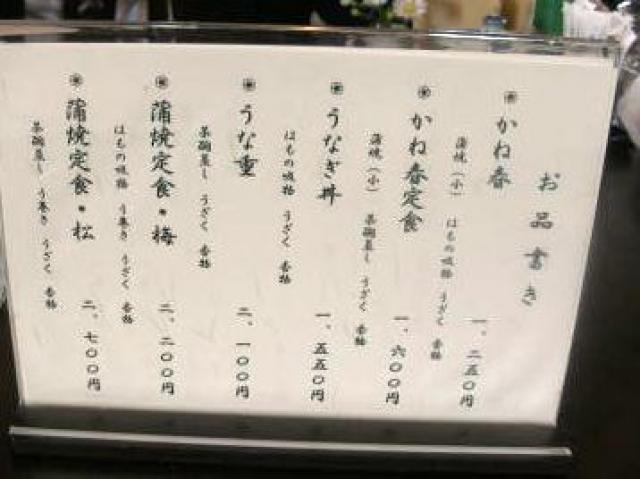 お品書き
◉ かね春
蒲焼(小) はもの吸物 うざく 香物
一、二五〇円
◉ かね春定食
蒲焼(小) 茶碗蒸し うざく 香物
一、六〇〇円
◉ うなぎ丼
はもの吸物 うざく 香物
一、五五〇円
◉ うな重
茶碗蒸し うざく 香物
二、一〇〇円
◉ 蒲焼定食・梅
はもの吸物 う巻き うざく 香物
二、二〇〇円
◉ 蒲焼定食・松
茶碗蒸し う巻き うざく 香物
二、七〇〇円